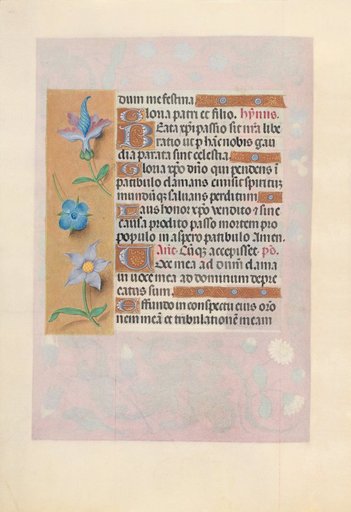 dum me festina
Gloria patri et filio. hỹnus.
Beata xp̃i passio sit nr̃a libe
ratio ut p hãc nobis gau
dia parata sint celestia.
Gloria xp̃o dño qui pendens ĩ
patibulo clamans emisit spiritũ
mundũq̃ saluans perditum
Laus honor xp̃o vendito ⁊ sine
causa prodito passo mortem pro
populo in aspero patibulo Amen.
Añe. Cũq̃ accepisset. p̃s.
Voce mea ad dñm clama
ui uoce mea ad dominum depre
catus sum.
Effundo in conspectu eius oro
nem meã et tribulationẽ meam